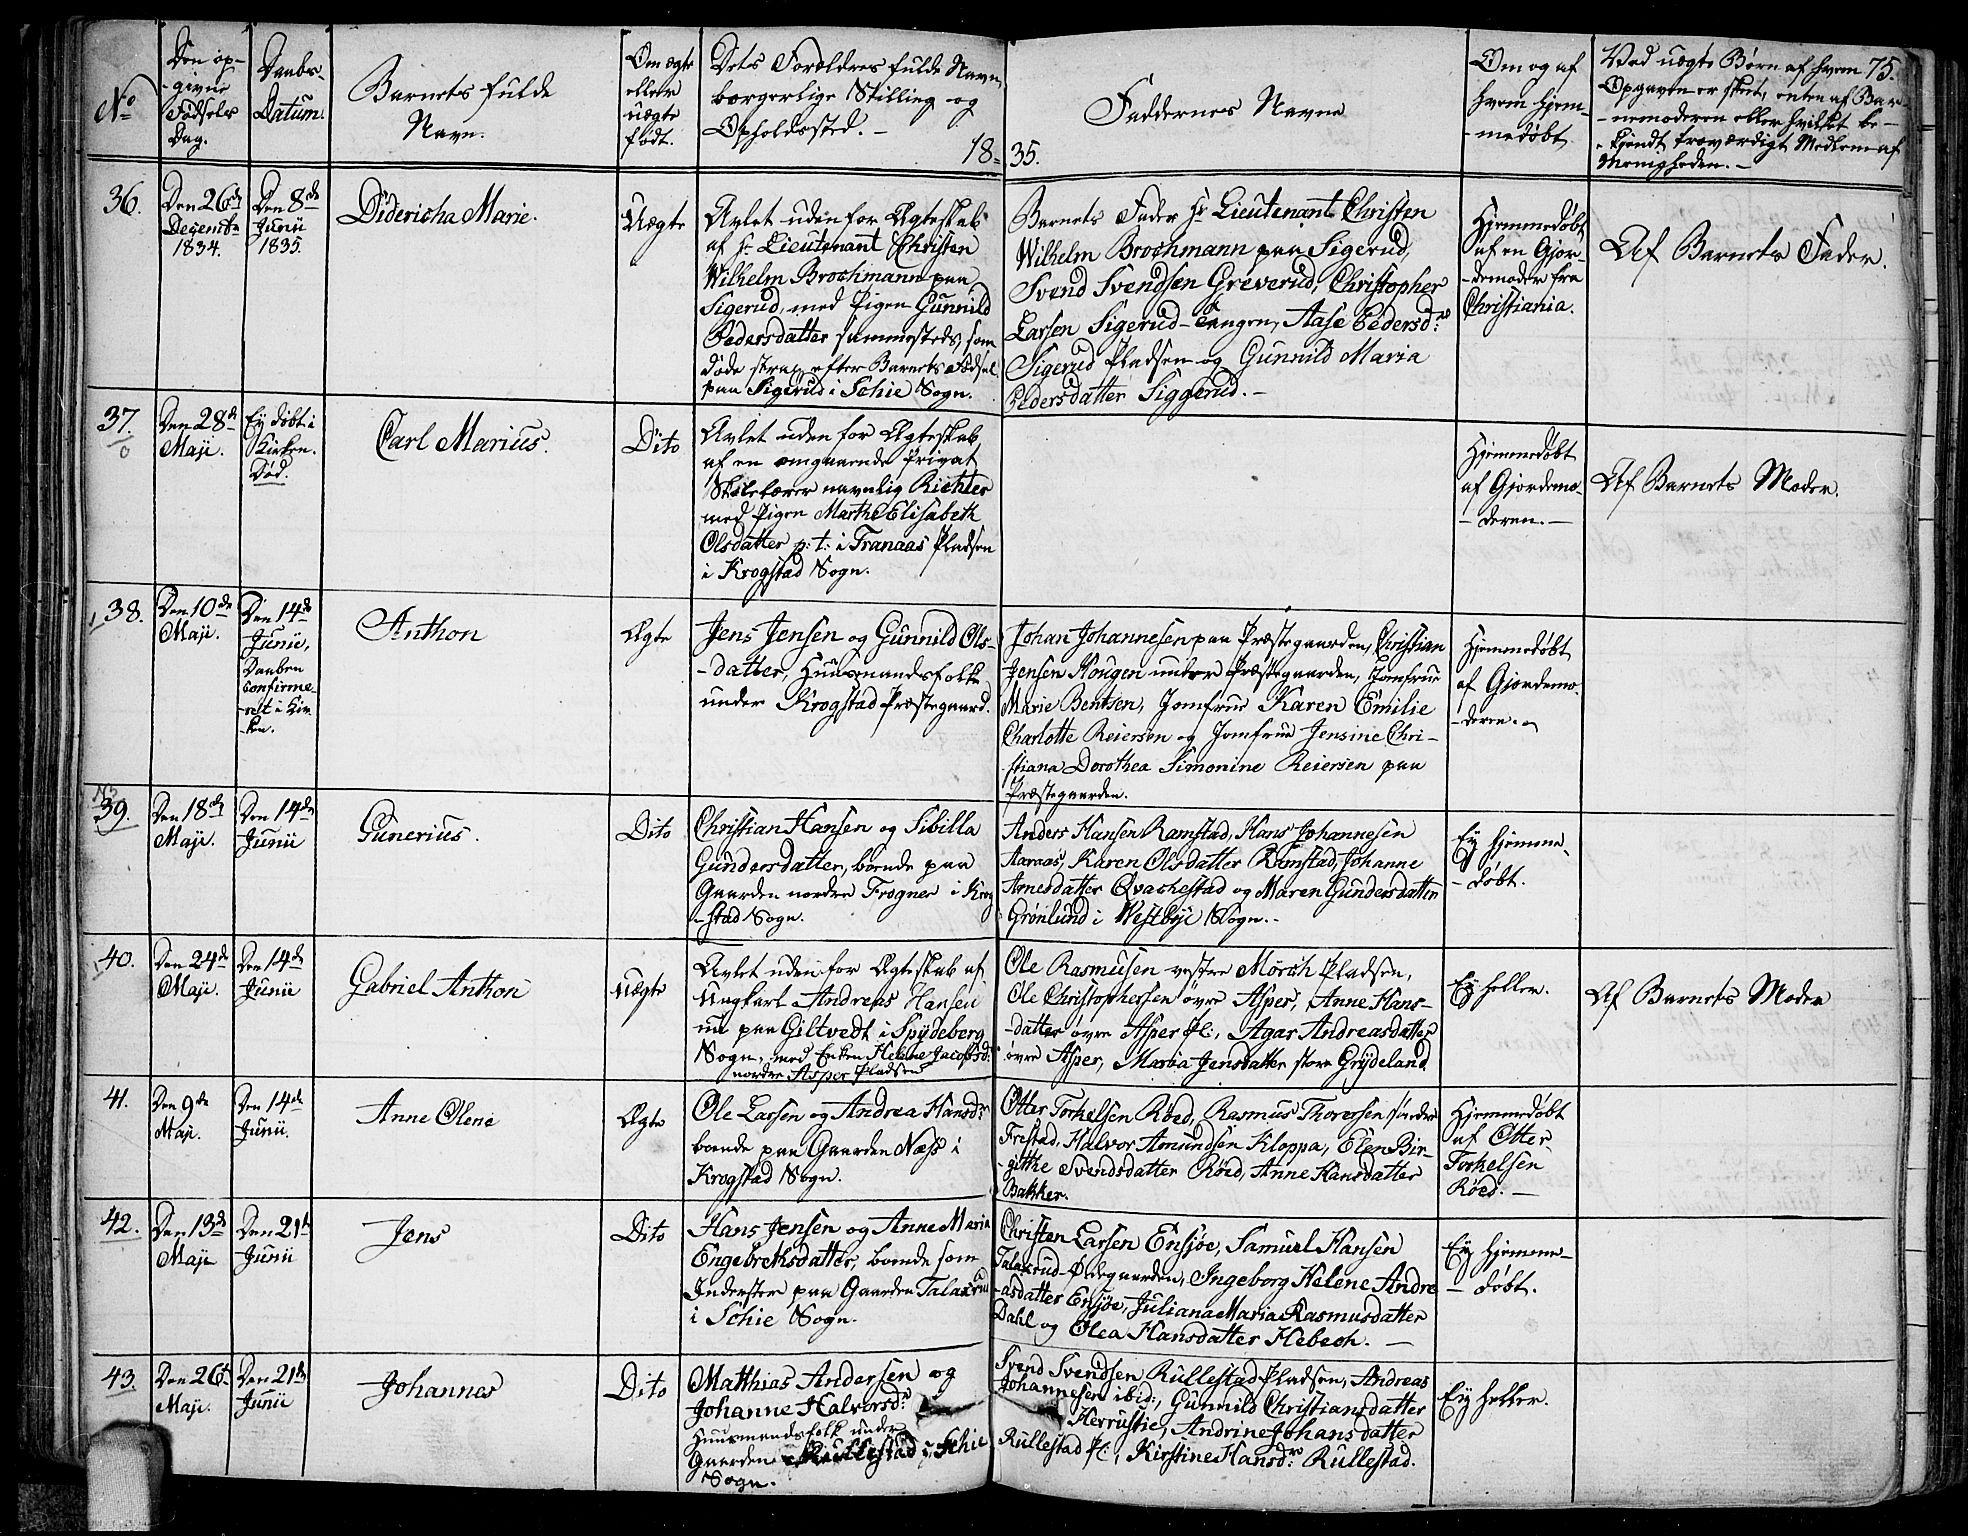 No
Den op-
-givne
Fødsels
Dag.
Daabs-
Datum.
Barnets fulde
Navn.
Om ægte
eller
uægte
født.
Dets Forældres fulde Navn,
borgerlige Stilling og
Opholdssted. -
18-
35.
Faddernes Navne
Om og af
hvem hjem-
-medøbt
Ved uægte Børn af hvem
75.
Opgaven er skeet, enten af Bar-
-nemoderen eller hvilket be-
-kjendt troværdigt Medlem af
Menigheden. -
36.
Den 26de
Decembr
1834.
Den 8de
Junii
1835.
Didericha Marie.
Uægte
Avlet uden for Ægteskab
af Hr Lieutenant Christen
Wilhelm Brochmann paa
Sigerud, med Pigen Gunnild
Pedersdatter sammesteds, som
døde strax efter Barnets Fødsel
paa Sigerud i Schie Sogn.
Barnets Fader Hr Lieutenant Christen
Wilhelm Brochmann paa Sigerud,
Svend Svendsen Greverud, Christopher
Larsen Sigerud-Tangen, Aase Pedersdr
Sigerud Pladsen og Gunnild Maria
Pedersdatter Siggerud. -
Hjemmedøbt
af en Gjor-
-demoder fra
Christiania.
Af Barnets Fader.
37.
0
Den 28de
Maji.
Ey døbt i
Kirken.
Død.
Carl Marius.
Dito
Avlet uden for Ægteskab,
af en omgaaende Privat
Skolelærer navnlig Richter
med Pigen Marthe Elisabeth
Olsdatter p: t: i Tranaas Pladsen
i Krogstad Sogn.
Hjemmedøbt
af Gjordemo-
-deren. -
Af Barnets Moder.
38.
Den 10de
Maji.
Den 14de
Junii,
Daaben
confirme-
-ret i Kir-
-ken.
Anthon
Ægte
Jens Jensen og Gunnild Ols-
-datter, Huusmandsfolk
under Krogstad Præstegaard.
Johan Johannesen paa Præstegaarden, Christian
Jensen Hougen under Præstegaarden, Jomfrue
Marie Bentsen, Jomfrue Karen Emilie
Charlotte Reiersen og Jomfrue Jensine Chri-
-stiana Dorothea Simonine Reiersen paa
Præstegaarden.
Hjemmedøbt
af Gjordemo-
-deren.
39.
Den 18de
Maji.
Den 14de
Junii
Gunerius.
Dito
Christian Hansen og Sibilla
Gundersdatter, boende paa
Gaarden nordre Frogner i Krog
-stad Sogn.
Anders Hansen Ramstad, Hans Johannesen
Aaraas, Karen Olsdatter Ramstad, Johanne
Arnesdatter Qvachestad og Maren Gundersdatter
Grönlund i Westbye Sogn. -
Ey hjemme-
-døbt.
40.
Den 24de
Maji.
Den 14de
Junii
Gabriel Anthon
Uægte
Avlet uden for Ægteskab af
Ungkarl Andreas Hansen
nu paa Giltvedt i Spydeberg
Sogn, med Enken Helene Jacobsd:
nordre Asper Pladsen
Ole Rasmusen vestre Mörch Pladsen,
Ole Christophersen övre Asper, Anne Hans-
-datter övre Asper Pl:, Agar Andreasdatter
övre Asper, Maria Jensdatter store Grydeland
Ey heller.
Af Barnets Moder
41.
Den 9de
Maji.
Den 14de
Junii.
Anne Olene
Ægte
Ole Larsen og Andrea Hansdr
boende paa Gaarden Næss i
Krogstad Sogn.
Otter Torkelsen Röed, Rasmus Thoresen söndre
Frestad, Halvor Amundsen Kloppa, Elen Bir-
-gitthe Svendsdatter Röed, Anne Hansdatter
Bakker.
Hjemmedøbt
af Otter
Torkelsen
Röed. -
42.
Den 13de
Maji
Den 21de
Junii
Jens
Dito
Hans Jensen og Anne Maria
Engebrethsdatter, boende som
Inderster paa Gaarden Talaxrud
i Schie Sogn.
Christen Larsen Ensjöe, Samuel Hansen
Talaxrud-Ødegaarden, Ingeborg Helene Andre
-asdatter Ensjöe, Juliana Maria Rasmusdatter
Dahl og Olea Hansdatter Hebech. -
Ey hjemme-
-døbt.
43.
Den 26de
Maji.
Den 21de
Junii
Johannes
Dito
Matthias Andersen og
Johanne Halvorsdr
Huusmandsfolk under
Gaarden Rullestad i Schie
Sogn.
Svend Svendsen Rullestad Pladsen, Andreas
Johannesen ibid:, Gunnild Christiansdatter
Herrustie, Andrine Johansdatter
Rullestad Pl:, Kirstine Hansdr Rullestad.
Ey heller.